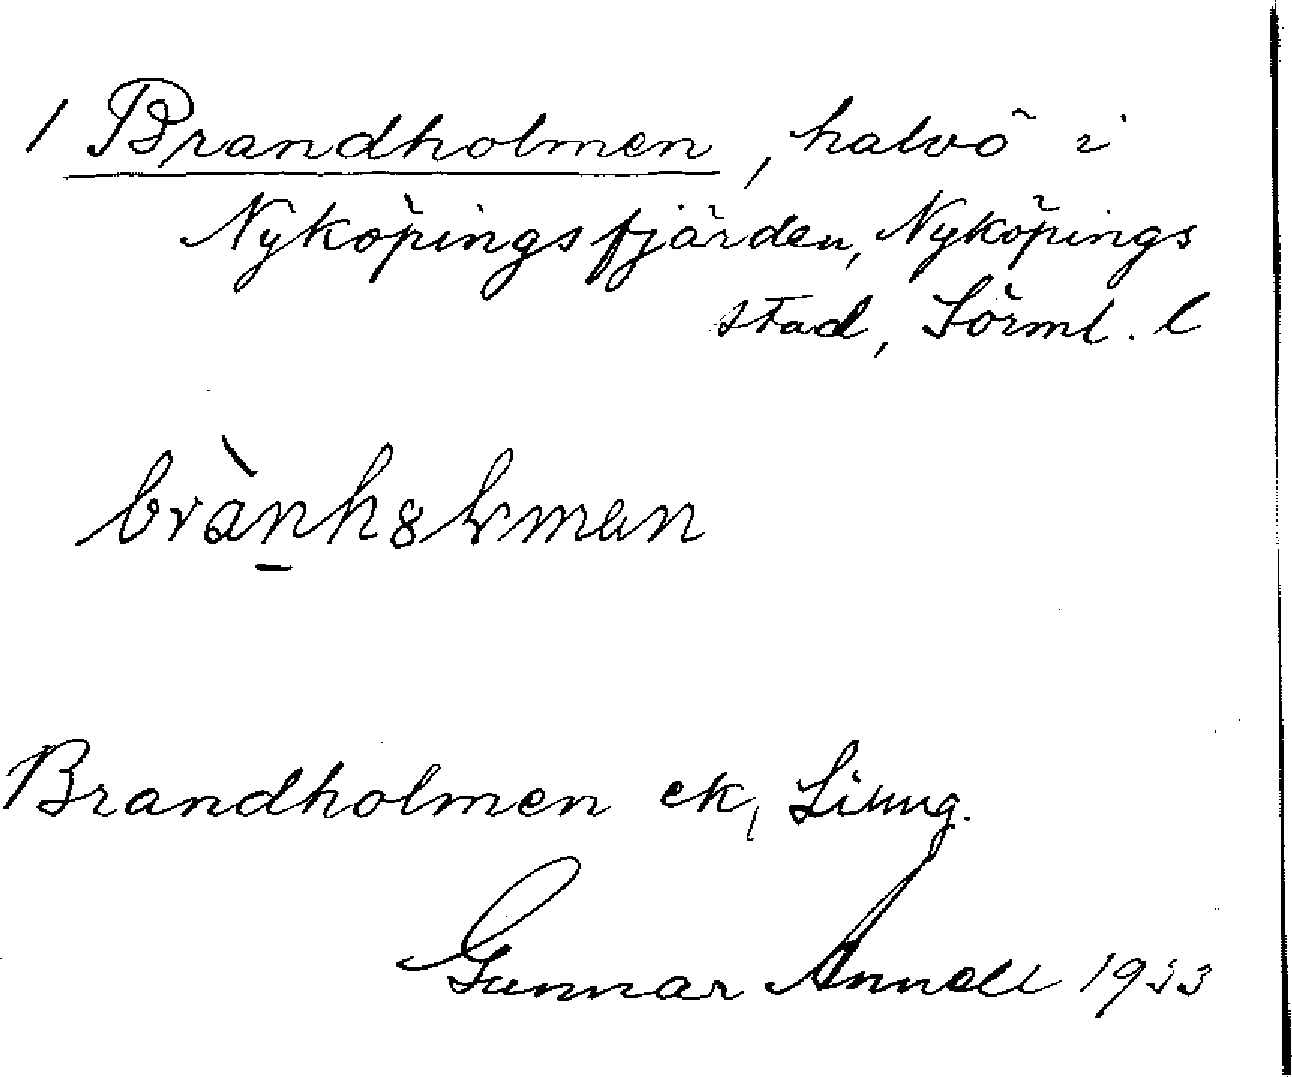 1 Brandholmen, halvö i
Nyköpingsfjärden, Nyköpings
stad, Sörml. l
Brandholmen ek,
Gunnar Annell 1933